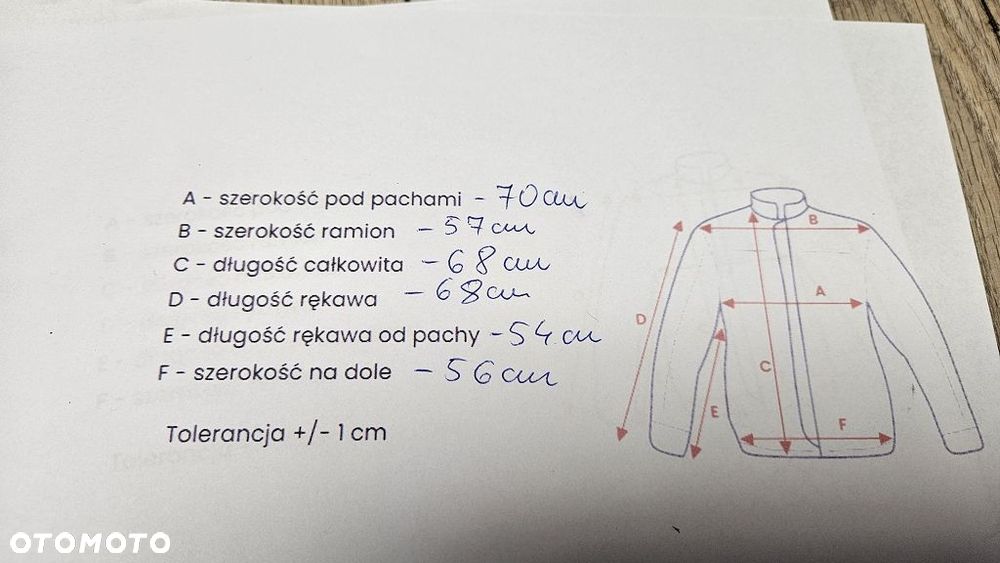 A - szerokość pod pachami - 70cm
B - szerokość ramion - 57cm
C - długość całkowita - 68cm
D - długość rękawa - 68cm
E - długość rękawa od pachy - 54cm
F - szerokość na dole - 56cm
Tolerancja +/- 1 cm
B
A
D
C
E
F
OTOMOTO